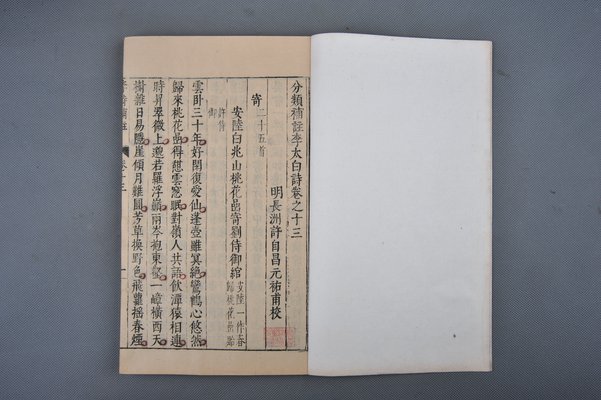 分類補註李太白詩卷之十三
明長洲許自昌元祐甫校
寄二十五首
安陸白兆山桃花岩寄劉侍御綰安陸一作春歸桃花岩貽許侍御
雲臥三十年好閑復愛仙蓬壺雖冥絶鸞鶴心悠然
歸來桃花岩得憇雲窓眠對嶺人共語飲潭猿相連
時昇翠微上邈若羅浮巔兩岑抱東壑一嶂橫西天
樹雜日易隱崖傾月難圓芳草換野色飛蘿摇春煙
卷十三